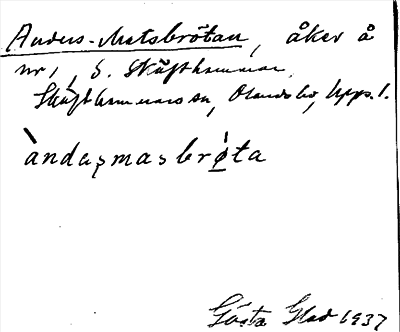 Anders-Matsbrötan, åker å
nr 1, S. Skäfthammar,
Skäfthammars sn, Olands hd, Upps. l.
àndaṣmaṣbrø̀ta
Gösta Glad 1937